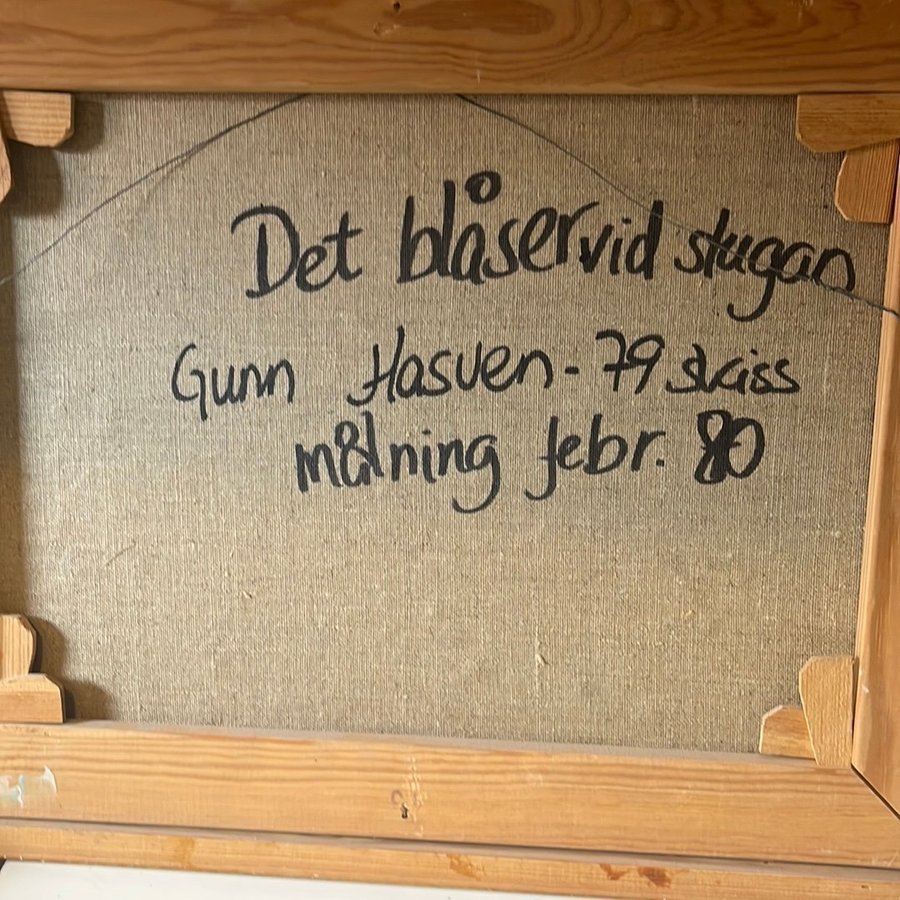 Det blåser vid stugan
Gunn Hasven - 79 skiss
målning febr. 80